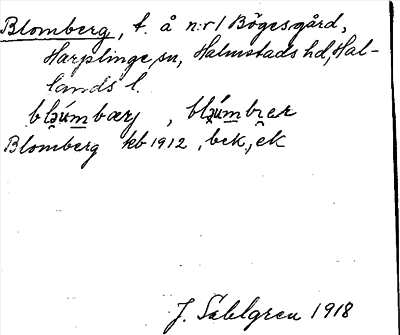 Blomberg, t. å n:r 1 Bögesgård,
Harplinge sn, Halmstads hd, Hal-
lands l.
Blomberg kb 1912, bck, ek
J. Sahlgren 1918